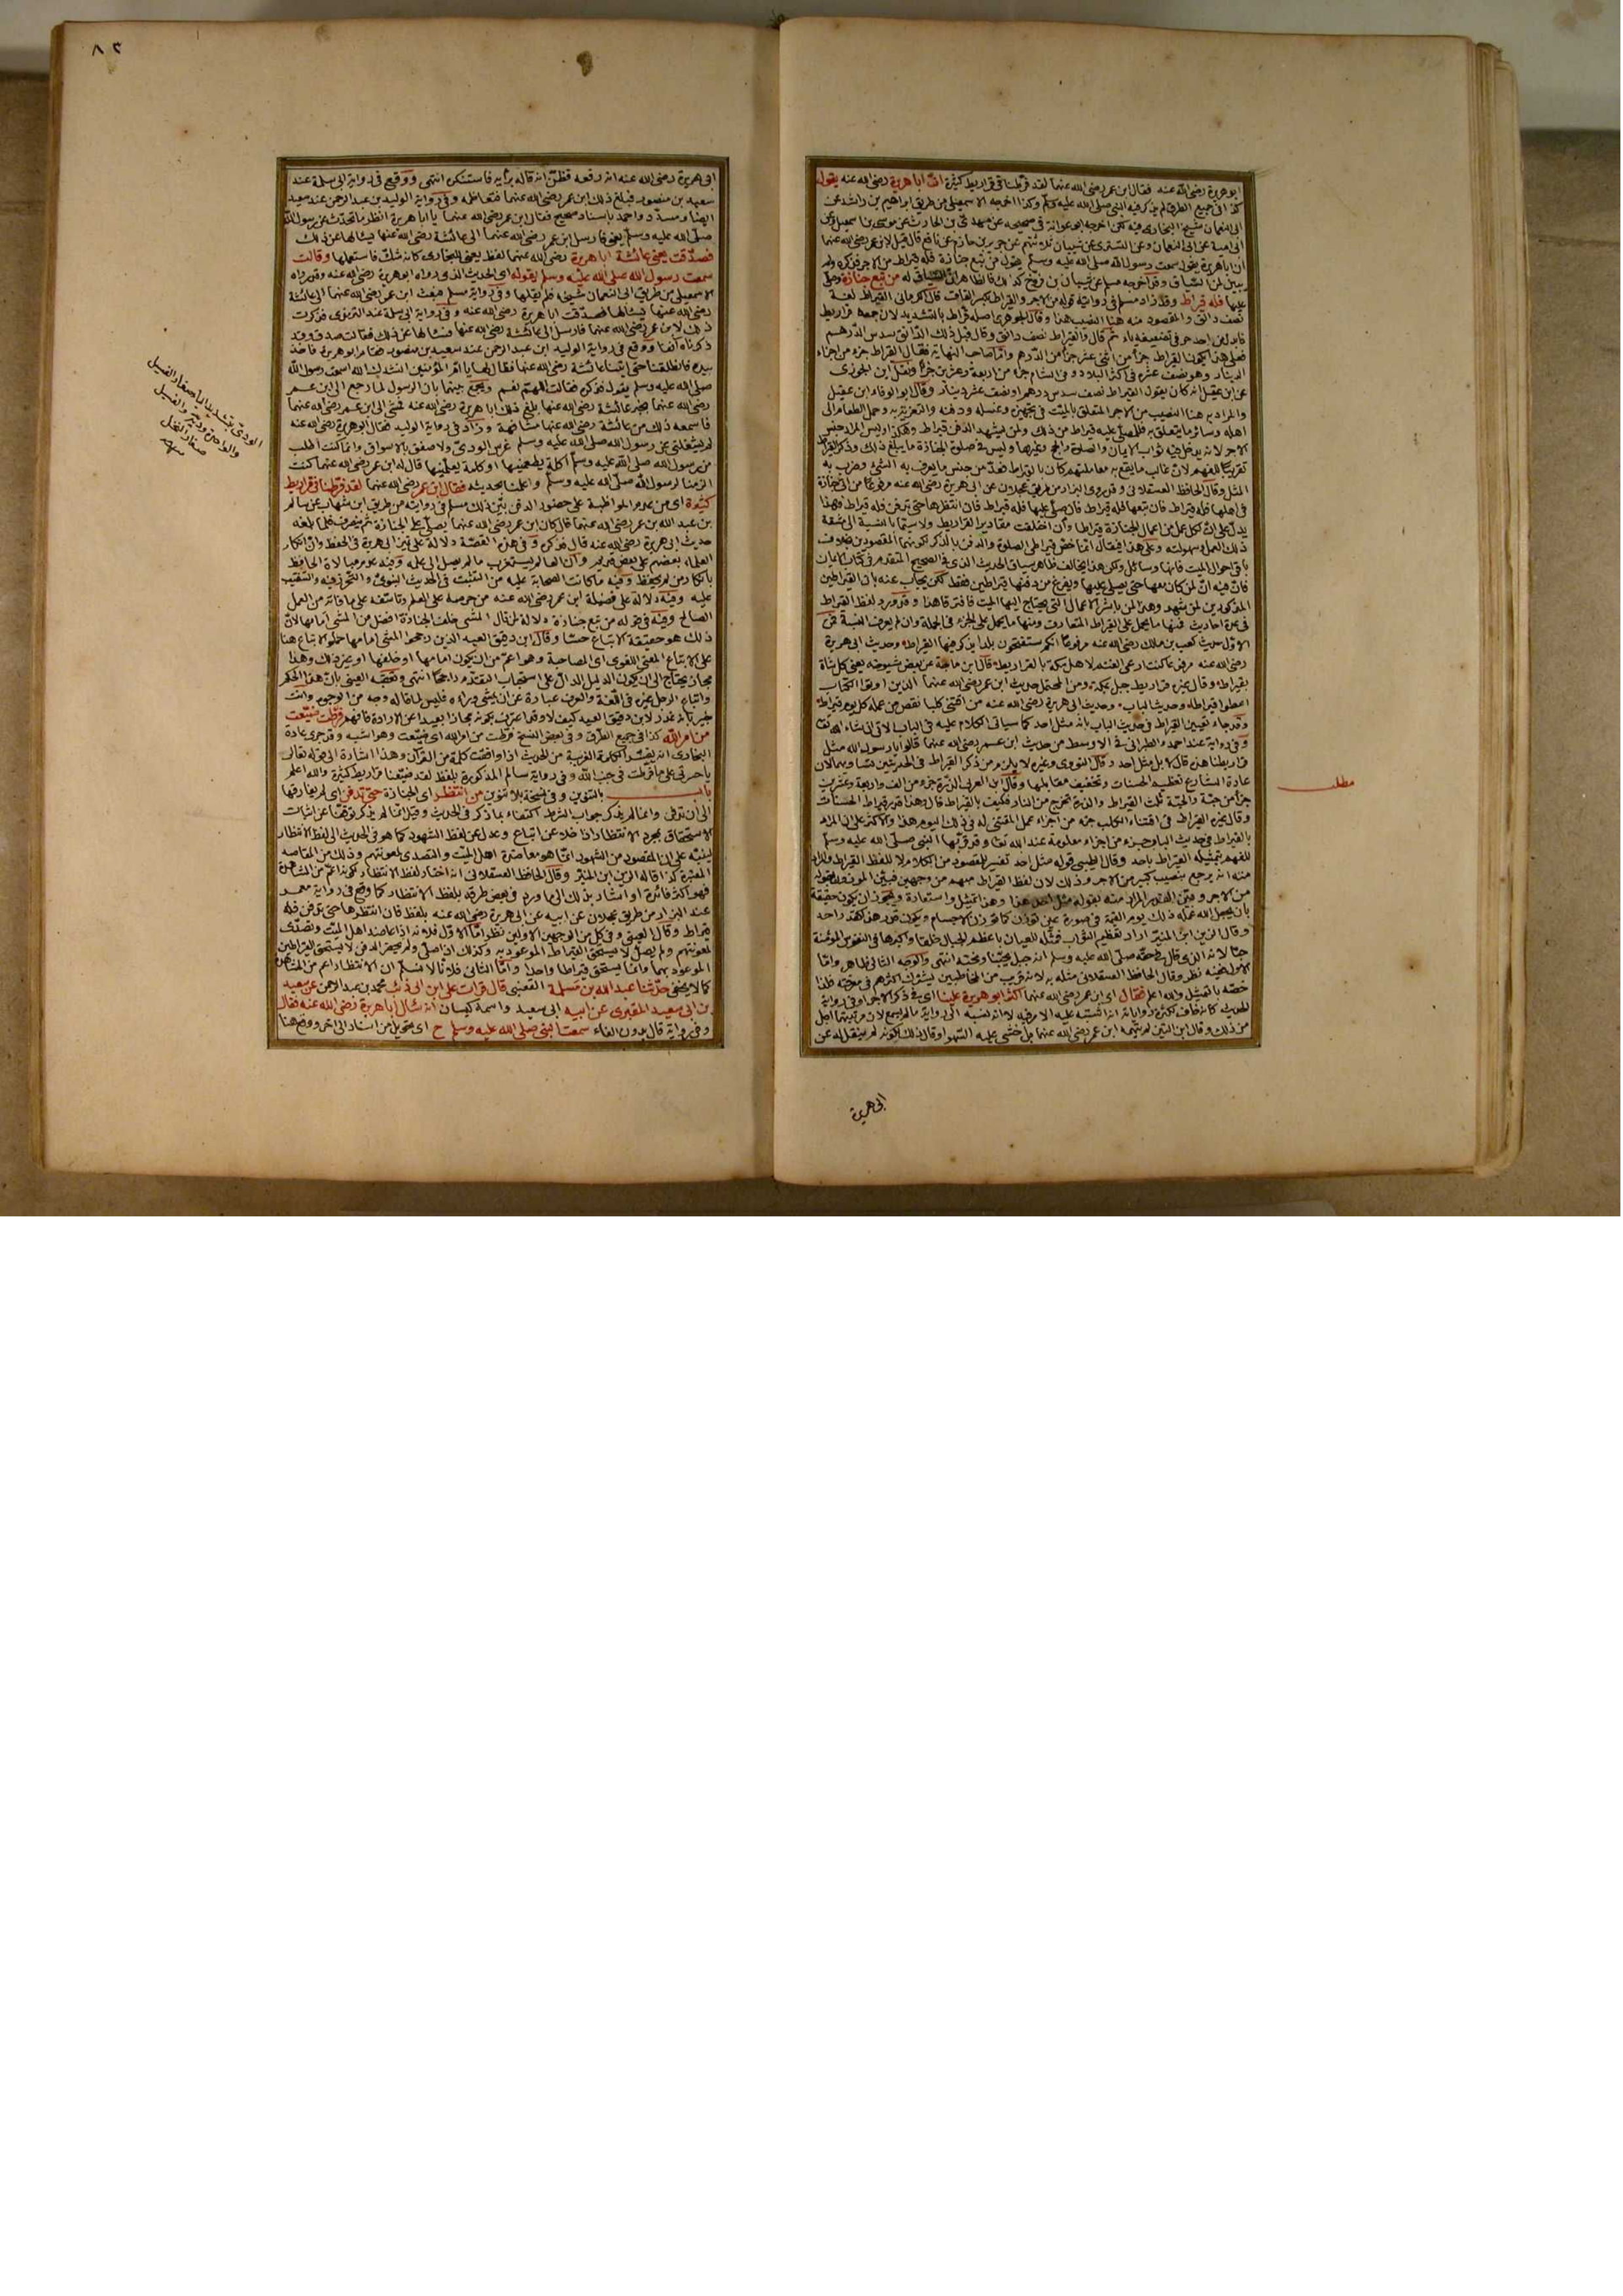 ابو هريرة رضي الله عنه فقال ابن عمر رضي الله عنهما لقد فرطنا في قراريط كثيرة ان ابا هريرة رضي الله عنه يقول
كذا في جميع الطرق لم يذكر فيه النبي صلى الله عليه وسلم وكذا اخرجه الاسمعيلي من طريق ابراهيم بن راشد عن
ابي النعمان شيخ البخاري فيه لكن اخرجه ابو عوانة في صحيحه عن
ان ابا هريرة يقول سمعت رسول الله صلى الله عليه وسلم يقول من تبع جنازة فله قيراط من الاجر فذكره ولم
يبين لمن السياق وقد اخرجه مسلم عن شيبان بن فروخ كذلك فالظاهر ان السياق له من تبع جنازة وصلى
عليها فله قيراط وقد زاد مسلم في روايته قوله من الاجر والقيراط بكسر القاف قال الكرماني القيراط لغة
نصف دانق والمقصود منه هنا النصيب هنا وقال الجوهري اصله قراط بالتشديد لان جمعه قراريط
فابدل من احد حرفي تضعيفه ياء ثم قال والقيراط نصف دانق وقال قبل ذلك الدانق سدس الدرهم
فعلى هذا يكون القيراط جزأ من اثني عشر جزأ من الدرهم واما صاحب النهاية فقال القيراط جزء من اجزاء
الدينار وهو نصف عشره في اكثر البلاد وفي الشام جزء من اربعة وعشرين جزأ ونقل ابن الجوزي
عن ابن عقيل انه كان يقول القيراط نصف سدس درهم او نصف عشر دينار وقال ابو الوفاء ابن عقيل
والمراد به هنا النصيب من الاجر المتعلق بالميت في تجهيزه وغسله ودفنه والتعزية به وحمل الطعام الى
اهله وسائر ما يتعلق به فللمصلي عليه قيراط من ذلك ولمن يشهد الدفن قيراط وليس المراد جنس
الاجر لانه يدخل فيه ثواب الايمان والصلوة والحج وغيرها وليس في صلوة الجنازة ما يبلغ ذلك وذكر القيراط
تقريبا للفهم لان غالب ما يقع به معاملتهم كان بالقيراط فعد من جنس ما يعرف به الشئ وضرب به
المثل وقال الحافظ العسقلاني وقد روى البزار من طريق عجلان عن ابي هريرة رضي الله عنه مرفوعا من اتى جنازة
في اهلها فله قيراط فان تبعها فله قيراط فان صلى عليها فله قيراط فان انتظرها حتى تدفن فله قيراط فهذا
يدل على ان لكل عمل من اعمال الجنازة قيراطا وان اختلفت مقادير القراريط ولا سيما بالنسبة الى مشقة
ذلك العمل وسهولته وعلى هذا فيقال انما خص قيراطي الصلوة والدفن بالذكر لكونهما المقصودين بخلاف
باقي احوال الميت فانها وسائل ولكن هذا يخالف ظاهر سياق الحديث الذي في الصحيح المتقدم في كتاب الايمان
فان فيه ان لمن كان معها حتى يصلى عليها ويفرغ من دفنها قيراطين فقط لكن يجاب عنه بان القيراطين
المذكورين لمن شهد وهذا لمن باشر الاعمال التي يحتاج اليها الميت فافترقا هذا وقد ورد لفظ القيراط
في عدة احاديث فمنها ما يحمل على القيراط المتعارف ومنها ما يحمل على الجزء في الجملة وان لم يعرف النسبة فمن
الاول حديث كعب بن مالك رضي الله عنه مرفوعا انكم ستفتحون بلدا يذكر فيها القيراط وحديث ابي هريرة
رضي الله عنه مرفوعا كنت ارعى الغنم لاهل مكة بالقراريط قال ابن ماجة عن بعض شيوخه يعني كل شاة
بقيراط وقال غيره قراريط جبل بمكة ومن المحتمل حديث ابن عمر رضي الله عنهما الذين اوتوا الكتاب
اعطوا قيراطا قيراطا وحديث الباب وحديث ابي هريرة رضي الله عنه من اقتنى كلبا نقص من عمله كل يوم قيراط
وقد جاء تعيين القيراط في حديث الباب بانه مثل احد كما سيأتي الكلام عليه في الباب الاتي ان شاء الله تعالى
وفي رواية عند احمد والطبراني في الاوسط من حديث ابن عمر رضي الله عنهما قالوا يا رسول الله مثل
قراريطنا هذه قال لا بل مثل احد وقال النووي وغيره لا يلزم من ذكر القيراط في الحديثين تساويهما لان
عادة الشارع تعظيم الحسنات وتخفيف مقابلها وقال ابن العربي الذرة جزء من الف واربعة وعشرين
جزأ من حبة والحبة ثلث القيراط والذرة تخرج من النار فكيف بالقيراط قال وهذا قدر قيراط الحسنات
وقال غيره القيراط في اقتناء الكلب جزء من اجزاء عمل المقتني له في ذلك اليوم هذا والاكثر على ان المراد
بالقيراط في حديث الباب جزء من اجزاء معلومة عند الله تعالى وقد قربها النبي صلى الله عليه وسلم
للفهم بتمثيله القيراط باحد وقال الطيبي قوله مثل احد تفسير للمقصود من الكلام لا للفظ القيراط والمراد
منه انه يرجع بنصيب كبير من الاجر وذلك لان لفظ القيراط مبهم من وجهين فبين الموزون بقوله
من الاجر وبين المقدار المراد منه بقوله مثل احد هذا وهذا تمثيل واستعارة ويجوز ان يكون حقيقة
بان يجعل الله عمله ذلك يوم القيمة في صورة عين توزن كما توزن الاجسام ويكون قدر هذا كقدر احد
وقال الزين ابن المنير اراد تعظيم الثواب فمثله للعيان باعظم الجبال خلقا واكبرها في النفوس المؤمنة
حبا لانه الذي قال في حقه صلى الله عليه وسلم انه جبل يحبنا ونحبه انتهى والوجه الثاني ظاهر واما
الاول ففيه نظر وقال الحافظ العسقلاني مثله به لانه قريب من المخاطبين يشترك اكثرهم في معرفته فلذا
خصه بالتمثيل والله اعلم فقال اي ابن عمر رضي الله عنهما اكثر ابو هريرة علينا اي في ذكر الاجر او في رواية
الحديث كانه خاف لكثرة رواياته انه اشتبه عليه الامر فيه لا انه نسبه الى رواية ما لم يسمع لان مرتبتهما اجل
من ذلك وقال ابن التين لم يتهمه ابن عمر رضي الله عنهما بل خشي عليه السهو او قال ذلك لكونه لم ينقل له عن
مطلب
ابي هريرة
٨٢
ابي هريرة رضي الله عنه انه رفعه فظن انه قاله برأيه فاستنكره انتهى ووقع في رواية ابي سلمة عند
سعيد بن منصور فبلغ ذلك ابن عمر رضي الله عنهما فتعاظمه وفي رواية الوليد بن عبد الرحمن عند سعيد
ايضا ومسدد واحمد باسناد صحيح فقال ابن عمر رضي الله عنهما يا ابا هريرة انظر ما تحدث عن رسول الله
صلى الله عليه وسلم يعني فارسل ابن عمر رضي الله عنهما الى عائشة رضي الله عنها يسألها عن ذلك
فصدقت يعني عائشة ابا هريرة رضي الله عنهما لفظ يعني للبخاري كانه شك فاستعملها وقالت
سمعت رسول الله صلى الله عليه وسلم يقوله اي الحديث الذي رواه ابو هريرة رضي الله عنه وقد رواه
الاسمعيلي من طريق ابي النعمان شيخه فلم يقلها وفي رواية مسلم فبعث ابن عمر رضي الله عنهما الى عائشة
رضي الله عنها يسألها فصدقت ابا هريرة رضي الله عنه وفي رواية ابي سلمة عند الترمذي فذكرت
ذلك لابن عمر رضي الله عنهما فارسل الى عائشة رضي الله عنها فسألها عن ذلك فقالت صدق وقد
ذكرناه آنفا ووقع في رواية الوليد ابن عبد الرحمن عند سعيد بن منصور فقام ابو هريرة فاخذ
بيده فانطلقا حتى اتيا عائشة رضي الله عنها فقال لها يا ام المؤمنين انشدك الله اسمعت رسول الله
صلى الله عليه وسلم يقول فذكره فقالت اللهم نعم ويجمع بينهما بان الرسول لما رجع الى ابن عمر
رضي الله عنهما بخبر عائشة رضي الله عنها بلغ ذلك ابا هريرة رضي الله عنه فمشى الى ابن عمر رضي الله عنهما
فاسمعه ذلك من عائشة رضي الله عنها مشافهة وزاد في رواية الوليد فقال ابو هريرة رضي الله عنه
لم يشغلني عن رسول الله صلى الله عليه وسلم غرس الودي ولا صفق بالاسواق وانما كنت اطلب
من رسول الله صلى الله عليه وسلم اكلة يطعمنيها او كلمة يعلمنيها قال له ابن عمر رضي الله عنهما كنت
الزمنا لرسول الله صلى الله عليه وسلم واعلمنا بحديثه فقال ابن عمر رضي الله عنهما لقد فرطنا في قراريط
كثيرة اي من عدم المواظبة على حضور الدفن بين ذلك مسلم في روايته من طريق ابن شهاب عن سالم
بن عبد الله بن عمر رضي الله عنهما قال كان ابن عمر رضي الله عنهما يصلي على الجنازة ثم ينصرف فلما بلغه
حديث ابي هريرة رضي الله عنه قال فذكره وفي هذه القصة دلالة على تميز ابي هريرة في الحفظ وان انكار
العلماء بعضهم على بعض قديم وان العالم يستغرب ما لم يصل الى علمه وفيه عدم مبالاة الحافظ
بانكار من لم يحفظ وفيه ما كانت الصحابة عليه من التثبت في الحديث النبوي والتحرز فيه والتنقيب
عليه وفيه دلالة على فضيلة ابن عمر رضي الله عنه من حرصه على العلم وتأسفه على ما فاته من العمل
الصالح وفيه في قوله من تبع جنازة دلالة لمن قال المشي خلف الجنازة افضل من المشي امامها لان
ذلك هو حقيقة الاتباع حسا وقال ابن دقيق العيد الذين رجحوا المشي امامها حملوا الاتباع هنا
على الاتباع المعنوي اي المصاحبة وهو اعم من ان يكون امامها او خلفها او غير ذلك وهذا
مجاز يحتاج الى ان يكون الدليل الدال على استحباب التقدم راجحا انتهى وتعقبه العيني بان هذا تحكم
واتباع الرجل غيره في اللغة والعرف عبارة عن ان يمشي وراءه فليس لما قاله وجه من الوجوه وانت
خبير بانه
من امر الله كذا في جميع الطرق وفي بعض النسخ فرطت من امر الله اي ضيعت وهو اشبه وقد جرى عادة
البخاري انه يفسر الكلمة الغريبة من الحديث اذا وافقت كلمة من القرآن وهذا اشارة الى قوله تعالى
يا حسرتى على ما فرطت في جنب الله وفي رواية سالم المذكورة بلفظ لقد ضيعنا قراريط كثيرة والله اعلم
باب بالتنوين وفي نسخة بلا تنوين من انتظر اي الجنازة حتى تدفن اي لم يفارقها
الى ان تدفن وانما لم يذكر جواب الشرط اكتفاء بما ذكر في الحديث وقيل انما لم يذكر توقفا عن اثبات
الاستحقاق بمجرد الانتظار اذا خلا عن اتباع وعدل عن لفظ الشهود كما هو في الحديث الى لفظ الانتظار
لينبه على ان المقصود من الشهود انما هو معاضدة اهل الميت والتصدي لمعونتهم وذلك من المقاصد
المعتبرة كذا قاله الزين ابن المنير وقال الحافظ العسقلاني انه اختار لفظ الانتظار لكونه اعم من المشاهدة
فهو اكثر فائدة او اشار بذلك الى ما ورد في بعض طرقه بلفظ الانتظار كما وقع في رواية معمر
عند البزار من طريق عجلان عن ابيه عن ابي هريرة رضي الله عنه بلفظ فان انتظرها حتى تدفن فله
قيراط وقال العيني وفي كل من الوجهين الاولين نظر اما الاول فلانه اذا عاضد اهل الميت وتصدى
لمعونتهم ولم يصل لا يستحق القيراط الموعود به وكذلك اذا صلى ولم يحضر الدفن لا يستحق القيراطين
الموعود بهما وانما يستحق قيراطا واحدا واما الثاني فلانا لا نسلم ان الانتظار اعم من المشاهدة
كما لا يخفى حدثنا عبد الله بن مسلمة القعنبي قال قرأت على ابن ابي ذئب محمد بن عبد الرحمن عن سعيد
بن ابي سعيد المقبري عن ابيه ابي سعيد واسمه كيسان انه سأل ابا هريرة رضي الله عنه فقال
وفي رواية قال بدون الفاء سمعت النبي صلى الله عليه وسلم ح اي تحويل من اسناد الى آخر ووقع هنا
الودي بتشديد الياء صغار الفسيل
والواحدة ودية والفسيل
صغار النخل
منه